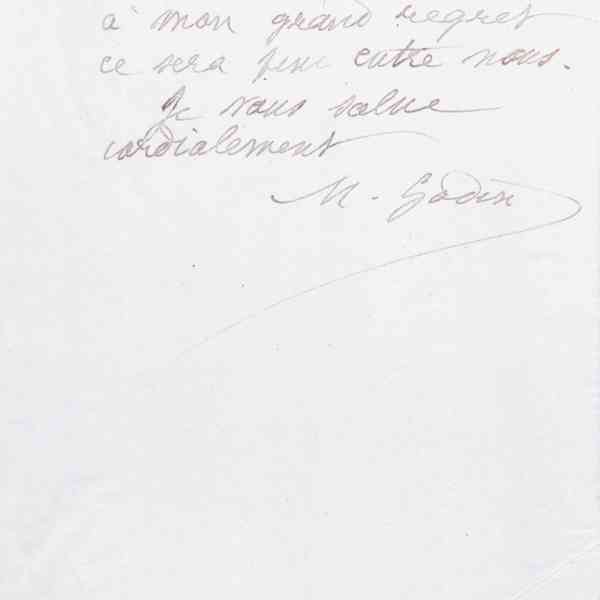 à mon grand regret
ce sera fini entre nous.
Je vous salue
cordialement
M. Godin